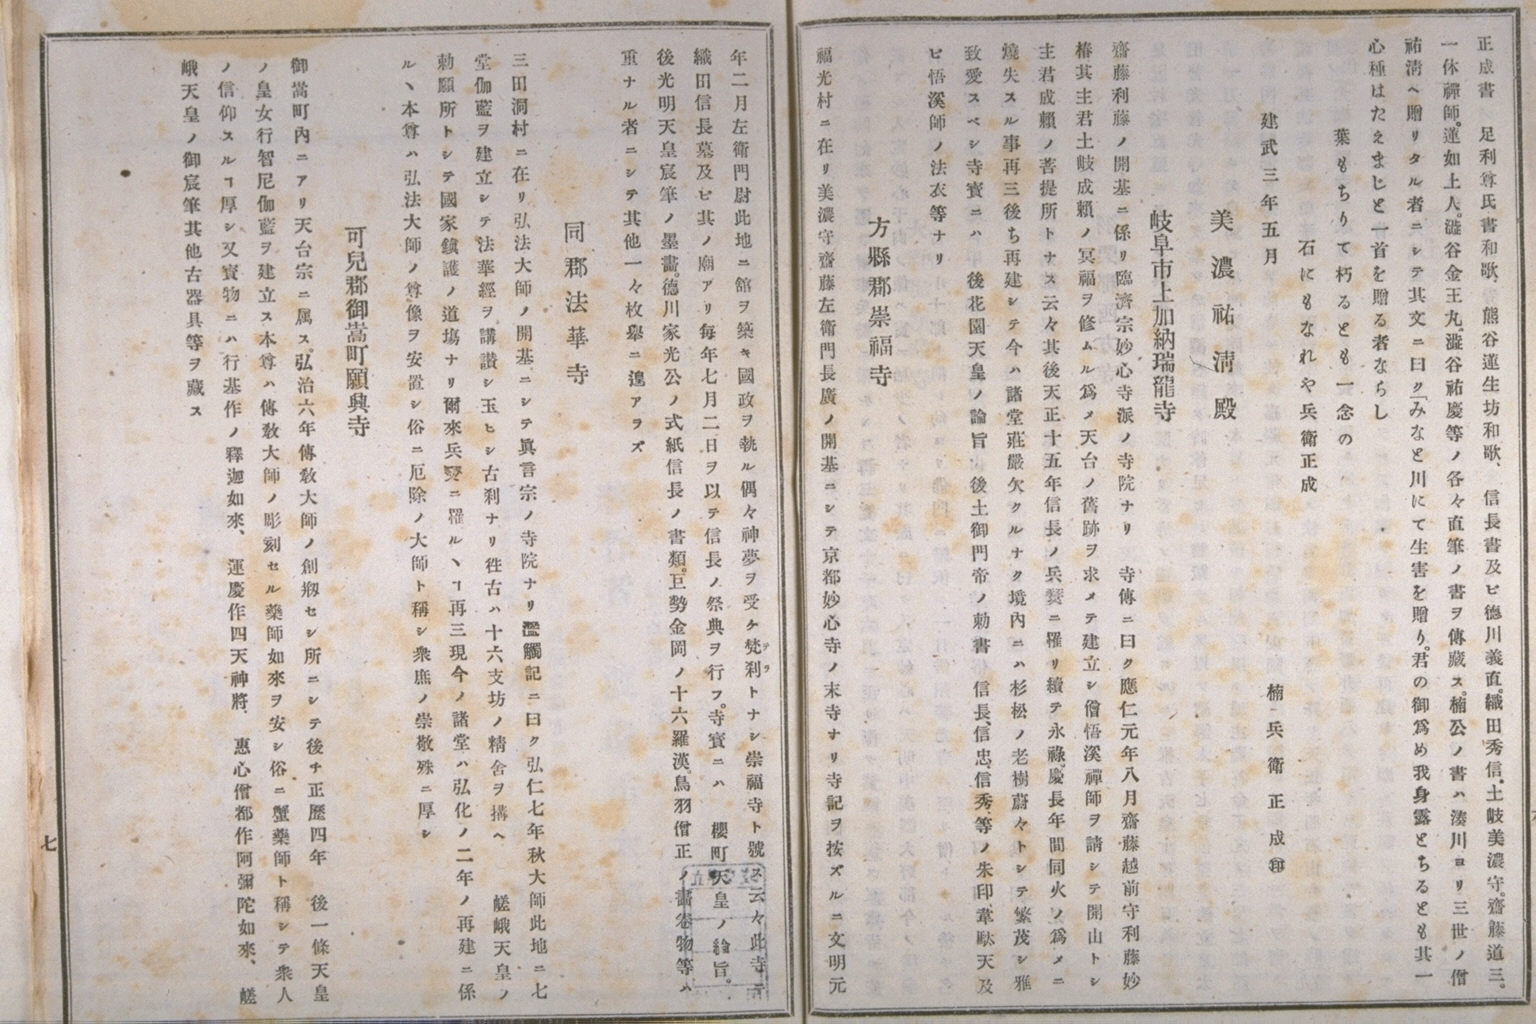 正成書、足利尊氏書和歌、熊谷蓮生坊和歌、信長書及ビ德川義直。織田秀信。土岐美濃守。齋藤道三。
一休禪師。蓮如上人。澁谷金王丸。澁谷祐慶等ノ各々直筆ノ書ヲ傳藏ス。楠公ノ書ハ湊川ヨリ三世ノ僧
祐淸ヘ贈リタル者ニシテ其文ニ曰ク「みなと川にて生害を贈り。君の御爲め我身露とちるとも其一
心種はたえまじと一首を贈る者ならし
葉もちりて朽るとも一念の
石にもなれや兵衛正成
建武三年五月
楠兵衛正成㊞
美濃祐淸殿
岐阜市上加納瑞龍寺
齋藤利藤ノ開基ニ係リ臨濟宗妙心寺派ノ寺院ナリ 寺傳ニ曰ク應仁元年八月齋藤越前守利藤妙
椿其主君土岐成賴ノ冥福ヲ修ムル爲メ天台ノ舊跡ヲ求メテ建立シ僧悟溪禪師ヲ請シテ開山トシ
主君成賴ノ菩提所トナス云々其後天正十五年信長ノ兵燹ニ罹リ續テ永祿。慶長年間同火ノ爲メニ
燒失スル事再三後ち再建シテ今ハ諸堂莊嚴欠クルナク境內ニハ杉松ノ老樹蔚々トシテ繁茂シ雅
致愛スベシ寺寶ニハ 後花園天皇ノ論旨 後土御門帝ノ勅書 信長、信忠、信秀、等ノ朱印韋駄天及
ビ悟溪師ノ法衣等ナリ
方縣郡崇福寺
福光村ニ在リ美濃守齋藤左衛門長廣ノ開基ニシテ京都妙心寺ノ末寺ナリ寺記ヲ按ズルニ文明元
年二月左衛門尉此地ニ舘ヲ築キ國政ヲ執ル偶々神夢ヲ受ケ梵刹トナシ崇福寺ト號ス云々此寺ニ
織田信長墓及ビ其ノ廟アリ每年七月二日ヲ以テ信長ノ祭典ヲ行フ。寺寶ニハ 櫻町天皇ノ綸旨。
後光明天皇宸筆ノ墨畵。德川家光公ノ式紙信長ノ書類。巨勢金岡ノ十六羅漢。鳥羽僧正ノ畵卷物等ハ
重ナル者ニシテ其他一々枚擧ニ遑アラズ
同郡法華寺
三田洞村ニ在リ弘法大師ノ開基ニシテ眞言宗ノ寺院ナリ濫觴記ニ曰ク弘仁七年秋大師此地ニ七
堂伽藍ヲ建立シテ法華經ヲ講讃シ玉ヒシ古刹ナリ徃古ハ十六支坊ノ精舍ヲ搆ヘ 嵯峨天皇ノ
勅願所トシテ國家鎭護ノ道塲ナリ爾來兵燹ニ罹ルヽヿ再三現今ノ諸堂ハ弘化ノ二年ノ再建ニ係
ルヽ本尊ハ弘法大師ノ尊像ヲ安置シ俗ニ厄除ノ大師ト稱シ衆庶ノ崇敬殊ニ厚シ
可兒郡御嵩町願興寺
御嵩町內ニアリ天台宗ニ属ス。弘治六年傳敎大師ノ創剏セシ所ニシテ後チ正歷四年 後一條天皇
ノ皇女行智尼伽藍ヲ建立ス本尊ハ傳敎大師ノ彫刻セル藥師如來ヲ安シ俗ニ蟹藥師ト稱シテ衆人
ノ信仰スルヿ厚シ又寳物ニハ行基作ノ釋迦如來、運慶作四天神將、惠心僧都作阿彌陀如來、嵯
峨天皇ノ御宸筆其他古器具等ヲ藏ス
七